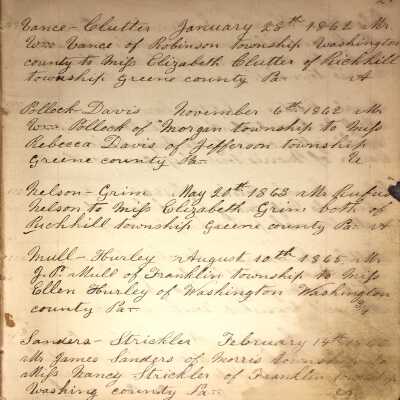 Vance-Clutter January 28th 1862 Mr
Wm Vance of Robinson township Washington
county to Miss Elizabeth Clutter of Richhill
township Greene county Pa
Pollock-Davis November 6th 1862 Mr
Wm Pollock of Morgan township to Miss
Rebecca Davis of Jefferson township
Greene county Pa
Nelson-Grim May 20th 1863 Mr Rufus
Nelson to Miss Elizabeth Grim both of
Richhill township Greene county Pa
Mull-Hurley August 10th 1865 Mr
J.P. Mull of Franklin township to Miss
Ellen Hurley of Washington Washington
county Pa
Sanders-Strickler February 14th
Mr James Sanders of Morris township to
Miss Nancy Strickler of Franklin township
Washing county Pa